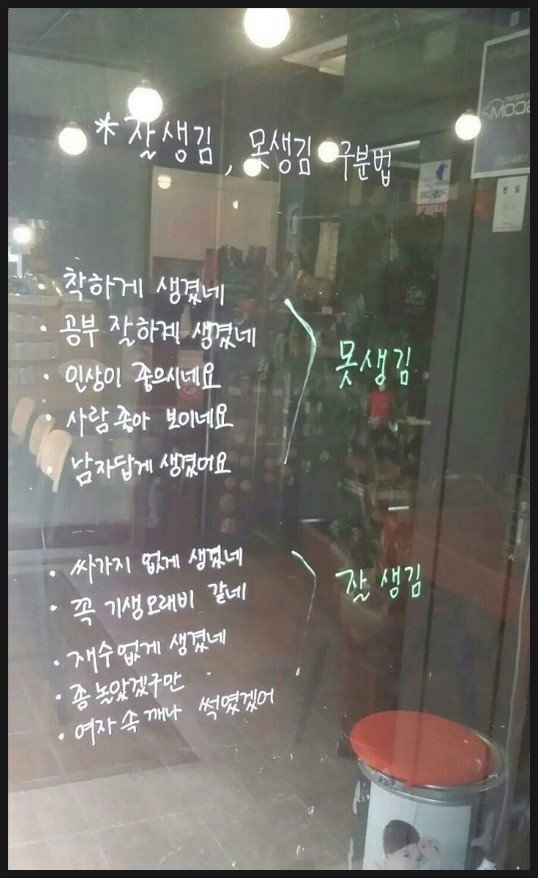 *잘생김, 못생김 구분법
· 착하게 생겼네
· 공부 잘하게 생겼네
· 인상이 좋으시네요
· 사람 좋아 보이네요
· 남자답게 생겼어요
못생김
· 싸가지 없게 생겼네
· 꼭 기생오래비 같네
· 재수없게 생겼네
· 좀 놀았겠구만
· 여자 속 깨나 썩였겠어
잘생김